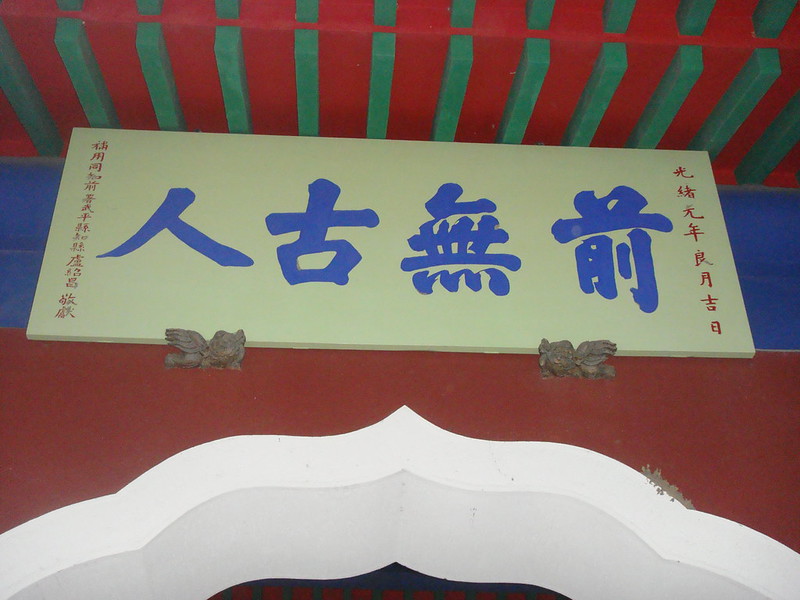 光緒元年良月吉日
前無古人
補用同知前署武平縣知縣盧紹昌敬獻